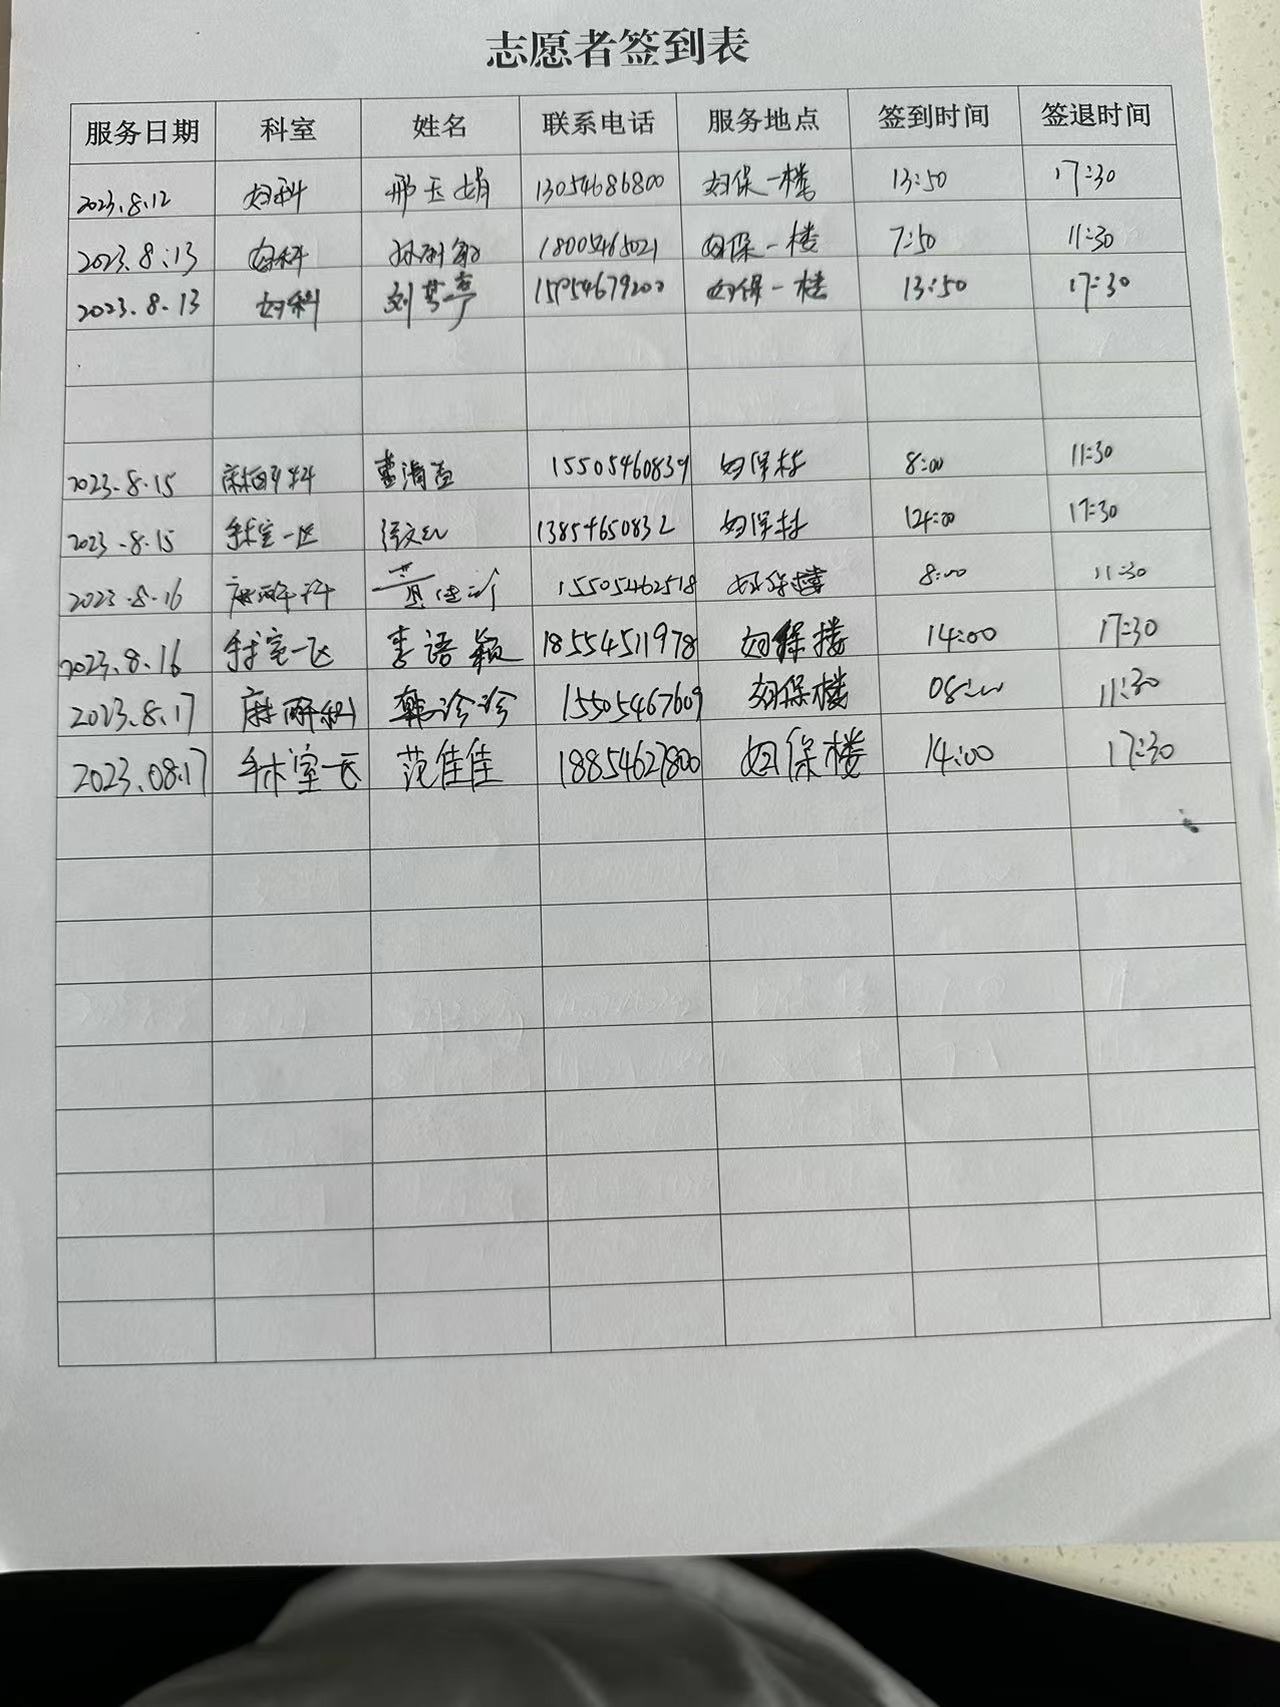 志愿者签到表
服务日期 科室 姓名 联系电话 服务地点 签到时间 签退时间
2023.8.12 妇科 邢玉娟 13054686800 妇保一楼 13:50 17:30
2023.8.13 妇科 18005465021 妇保一楼 7:50 11:30
2023.8.13 妇科 刘梦亭 15954679200 妇保一楼 13:50 17:30
2023.8.15 麻醉科 15505460839 妇保楼 8:00 11:30
2023.8.15 手术室一区 13854650832 妇保楼 14:00 17:30
2023.8.16 麻醉科 15505462518 妇保楼 8:00 11:30
2023.8.16 手术室一区 李语颖 18554511978 妇保楼 14:00 17:30
2023.8.17 麻醉科 韩诊诊 15505467609 妇保楼 08:00 11:30
2023.08.17 手术室一区 范佳佳 18854627800 妇保楼 14:00 17:30